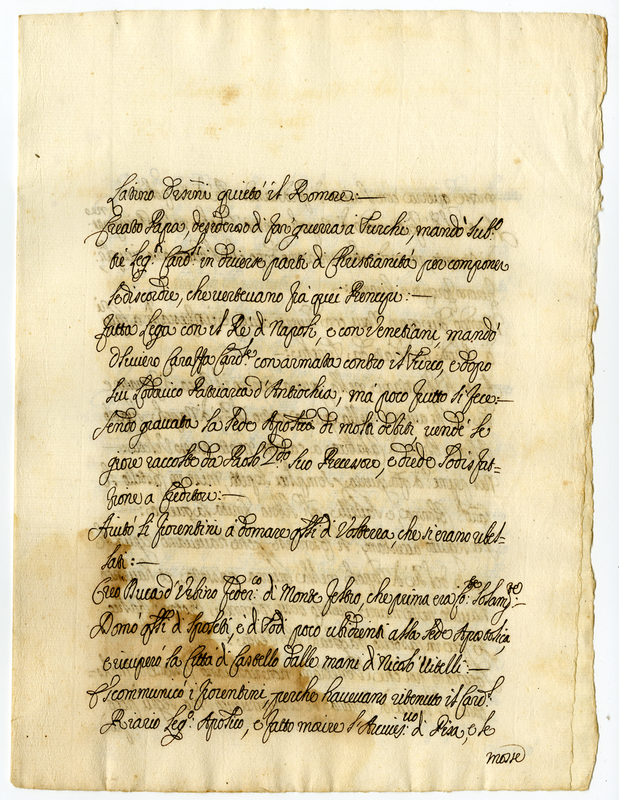 Latino Orsini quietò il Romore:—
Creato Papa, desideroso di far guerra a Turchi, mandò sub.o
tre Leg.ti Card.li in diverse parti d Christianità per componer
le discordie, che vertevano frà quei Prencipi:—
Fatta Lega con il Rè d Napoli, e con Venetiani, mandò
Oliviero Caraffa Card.le con armata contro il Turco, e dopo
lui Lodovico Patriarca d'Antiochia, mà poco frutto si fece:—
Sendo gravata la Sede Apostca di molti debiti, vendè le
gioie raccolte da Paolo 2do suo Precessore, e diede sodisfat-
tione a Creditori:—
Aiutò li Fiorentini à domare qlli di Volterra che si erano ribel-
lati:—
Creò Duca d'Urbino Feder.co di Monte Feltro, che prima era Co:te solam.te—
Domò qlli di Spoleti, e d Todi poco ubidienti alla Sede Apostolica,
e ricuperò la Città di Castello dalle mani d Nicolò Vitelli:—
Scommunicò i Fiorentini, perche havevano ritenuto il Card.l
Riario Leg.o Apostco, e fatto morire l'Arcives.vo di Pisa, e le
mosse